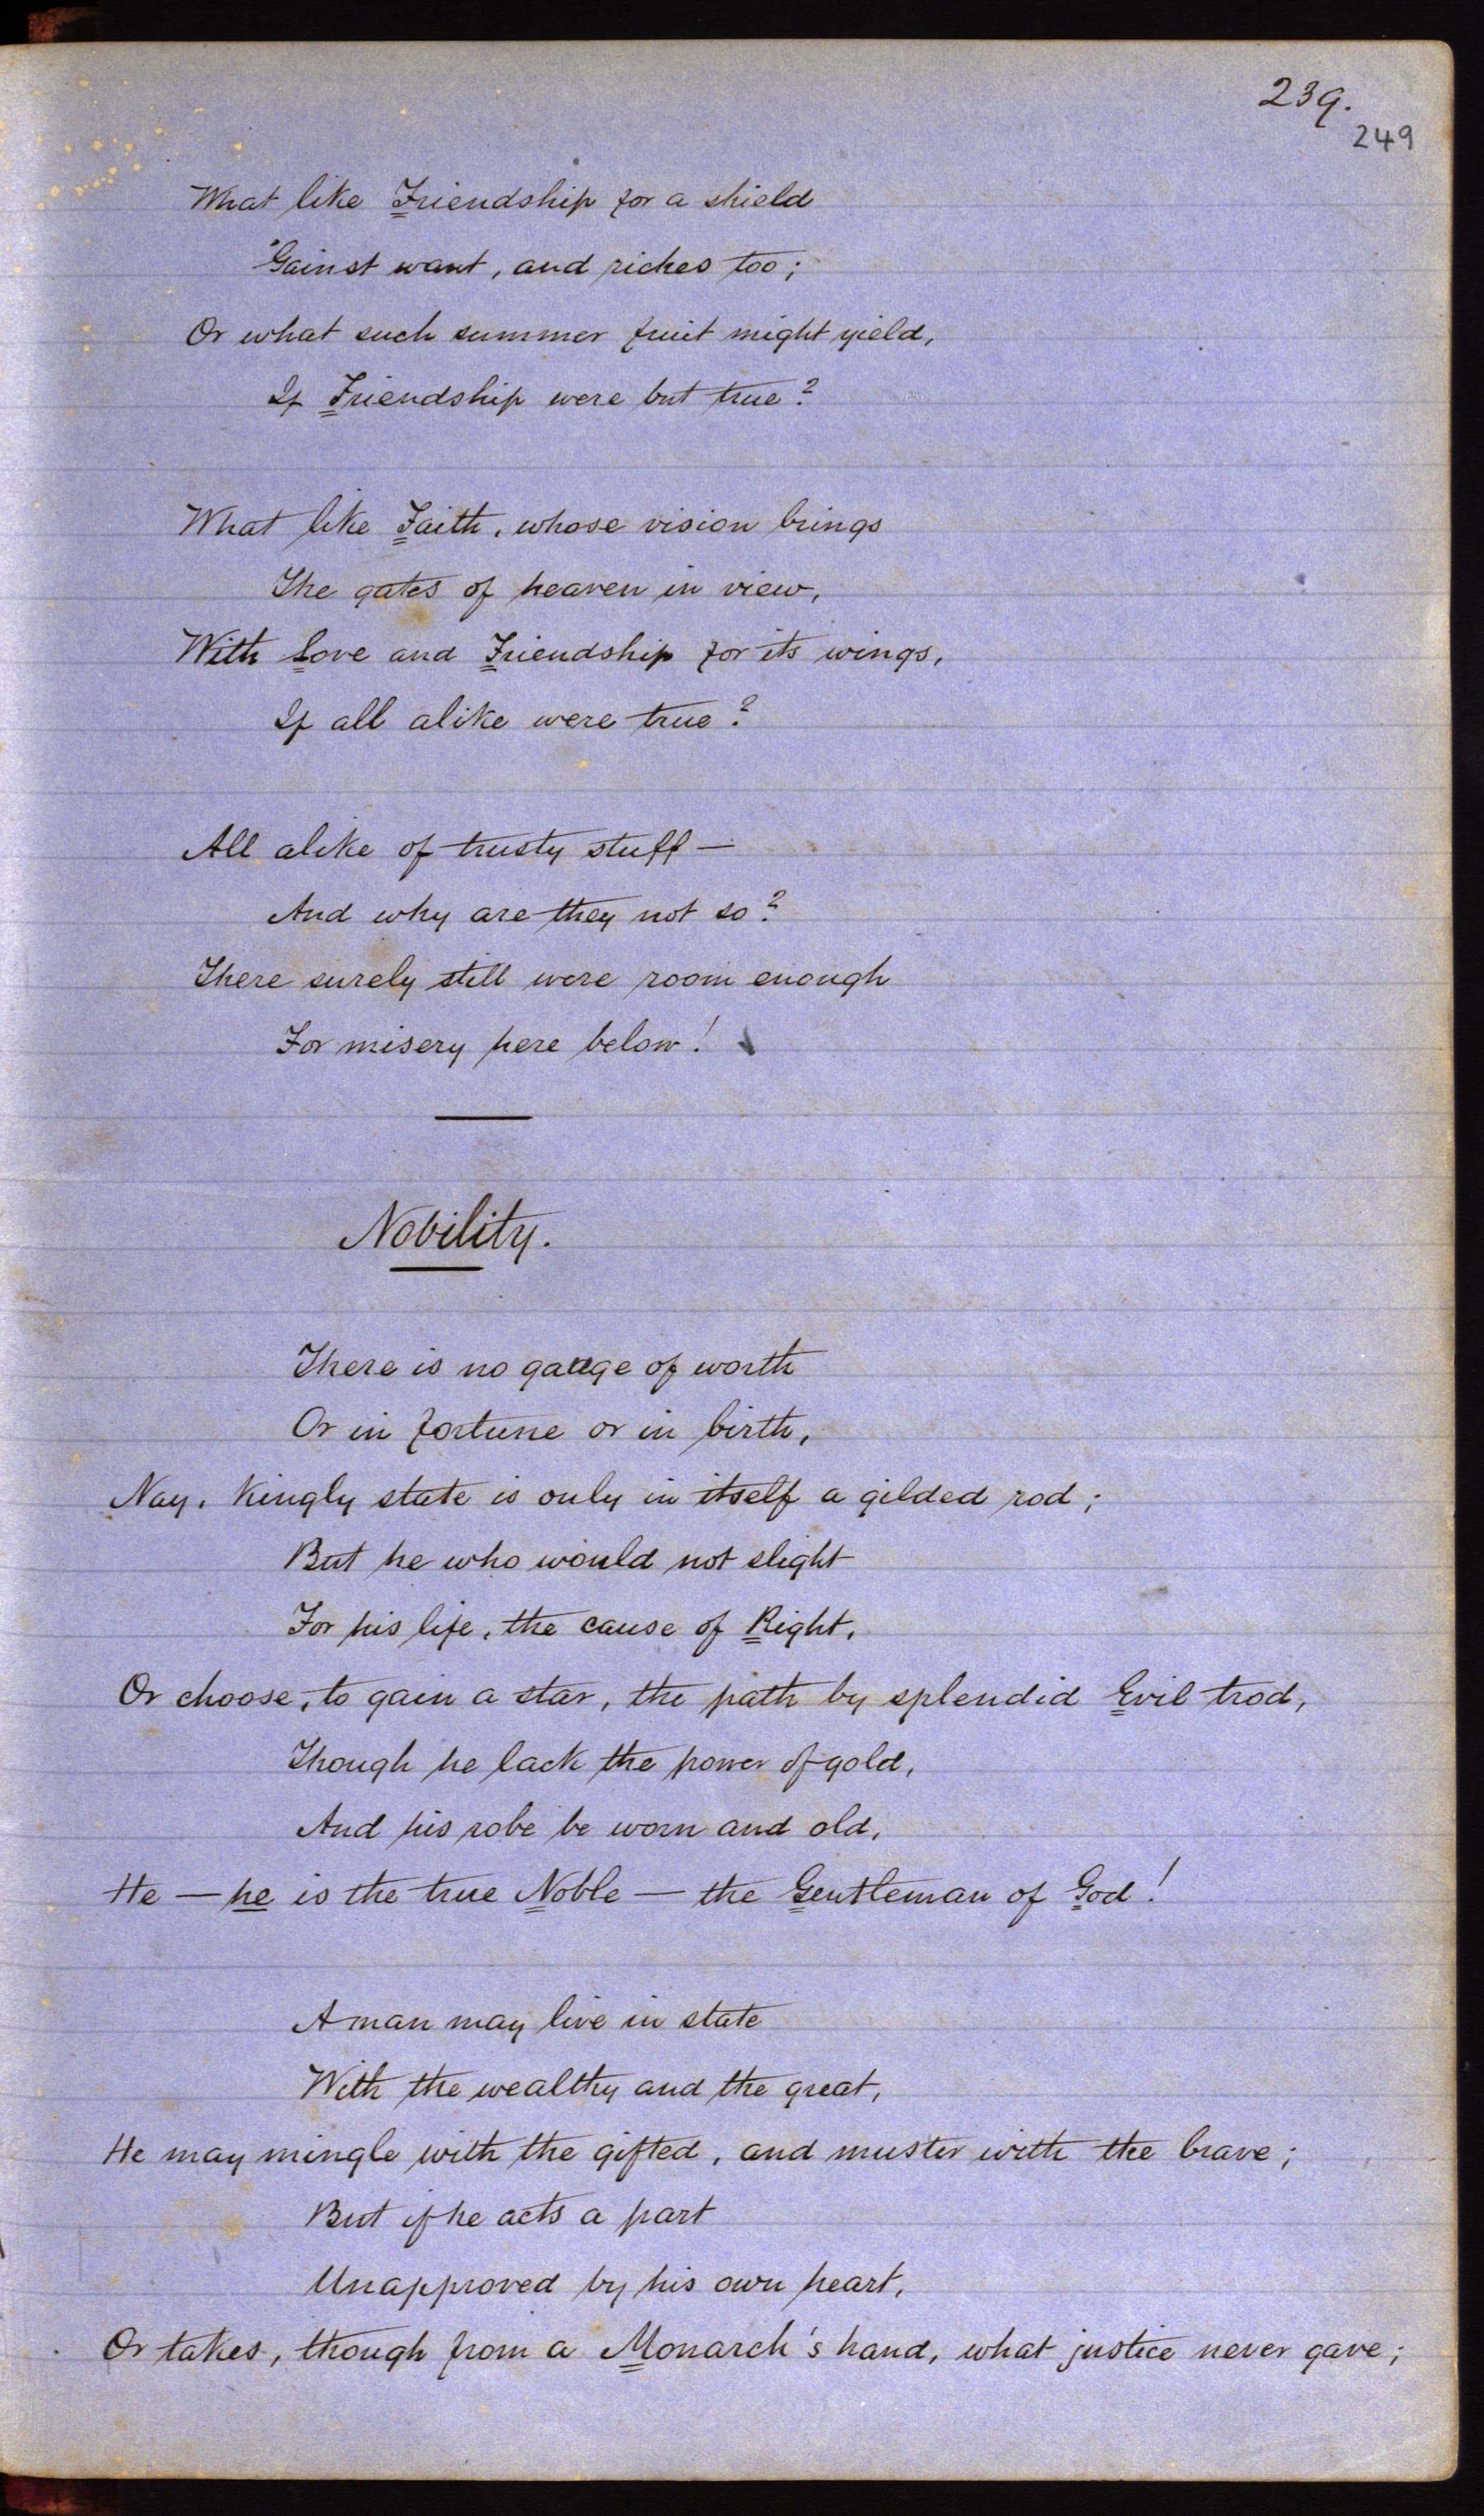 239.
249
What like Friendship for a shield
'Gainst want, and riches too;
Or what such summer fruit might yield,
If Friendship were but true?
What like Faith, whose vision brings
The gates of heaven in view,
With Love and Friendship for its wings,
If all alike were true?
All alike of trusty stuff —
And why are they not so?
There surely still were room enough
For misery here below!
Nobility.
There is no gauge of worth
Or in fortune or in birth,
Nay, Kingly state is only in itself a gilded rod;
But he who would not slight
For his life, the cause of Right,
Or choose, to gain a star, the path by splendid Evil trod,
Though he lack the power of gold,
And his robe be worn and old,
He — he is the true Noble — the Gentleman of God!
A man may live in state
With the wealthy and the great,
He may mingle with the gifted, and muster with the brave;
But if he acts a part
Unapproved by his own heart,
Or takes, though from a Monarch's hand, what justice never gave;